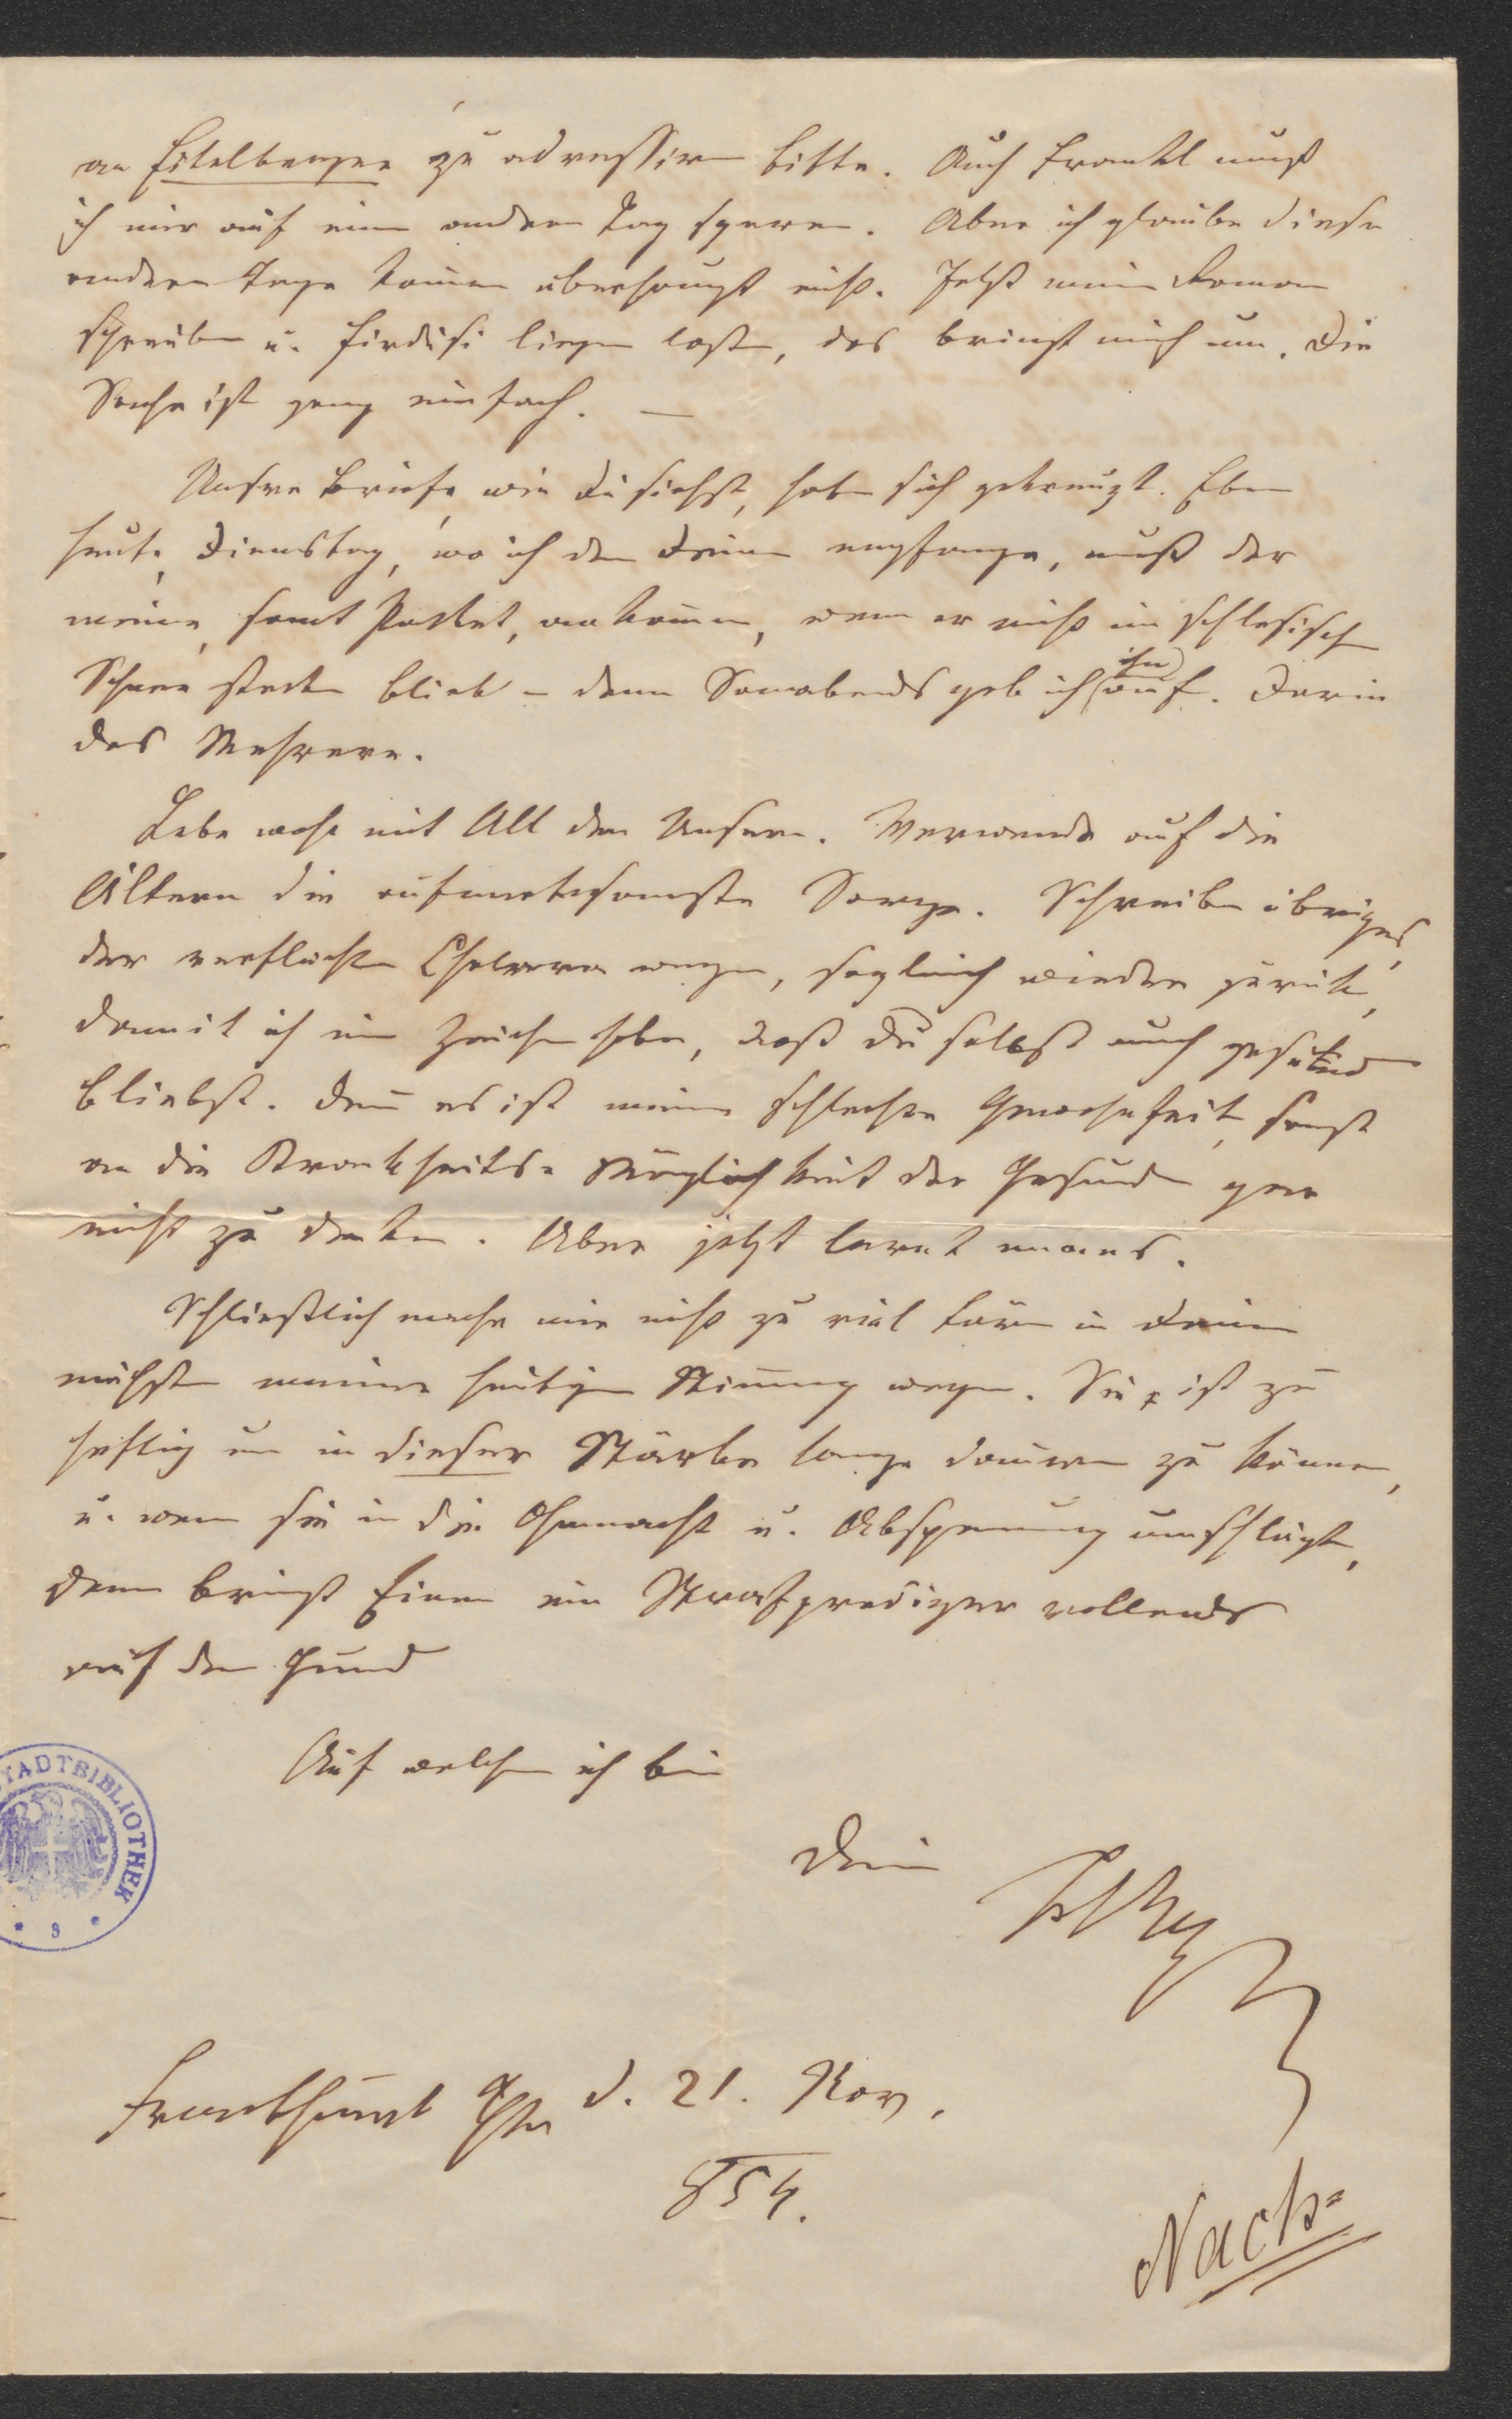 an Eitelberger zu adressiren bitte. Auch Frankl muß
ich mir auf einen andern Tag sparen. Aber ich glaube diese
andern Tage komen überhaupt nicht. Jetzt meinen Roman
schreiben u. Firdusi liegen lassen, das bringt mich um. Die
Sache ist ganz einfach. —
Unsre Briefe, wie du siehst, haben sich gekreuzt. Eben
heute, Dienstag, wo ich den Deinen empfange, muß der
meine, samt Packet, ankomen, wenn er nicht im schlesischen
Schnee stecken blieb – denn Sonnabends gab ich ihn auf. Darin
das Mehrere.
Lebe wohl mit All den Unsern. Verwende auf die
Ältern die aufmerksamste Sorge. Schreibe übrigens,
der verfluchten Cholera wegen, sogleich wieder zurück,
damit ich ein Zeichen habe, daß du selbst auch gesund
bliebst. Denn es ist meine schlechte Gewohnheit, sonst
an die Krankheits-Möglichkeit der Gesunden gar
nicht zu denken. Aber jetzt lernt man es.
Schließlich mache mir nicht zu viel Lärm in deinem
nächsten meiner heutigen Stimung wegen. Sie ist zu
heftig um in dieser Stärke lange dauern zu können,
u. wenn sie in die Ohnmacht u. Abspannung umschlägt,
dann bringt Einen ein Strafprediger vollends
auf den Hund
Auf welchem ich bin
Dein
d. 21. Nov.
854.
Nach=
STADTBIBLIOTHEK